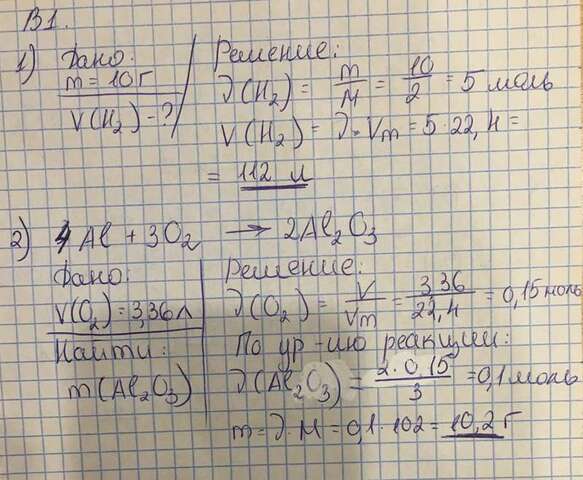 В1.
1) Дано:
m = 10 г
V(H₂) - ?
Решение:
∂(H₂) = m/M = 10/2 = 5 моль
V(H₂) = ∂·Vm = 5·22,4 =
= 112 л
2) 4Al + 3O₂ → 2Al₂O₃
Дано:
V(O₂) = 3,36 л
Найти:
m(Al₂O₃)
Решение:
∂(O₂) = V/Vm = 3,36/22,4 = 0,15 моль
По ур-ию реакции:
∂(Al₂O₃) = 2·0,15/3 = 0,1 моль
m = ∂·M = 0,1·102 = 10,2 г